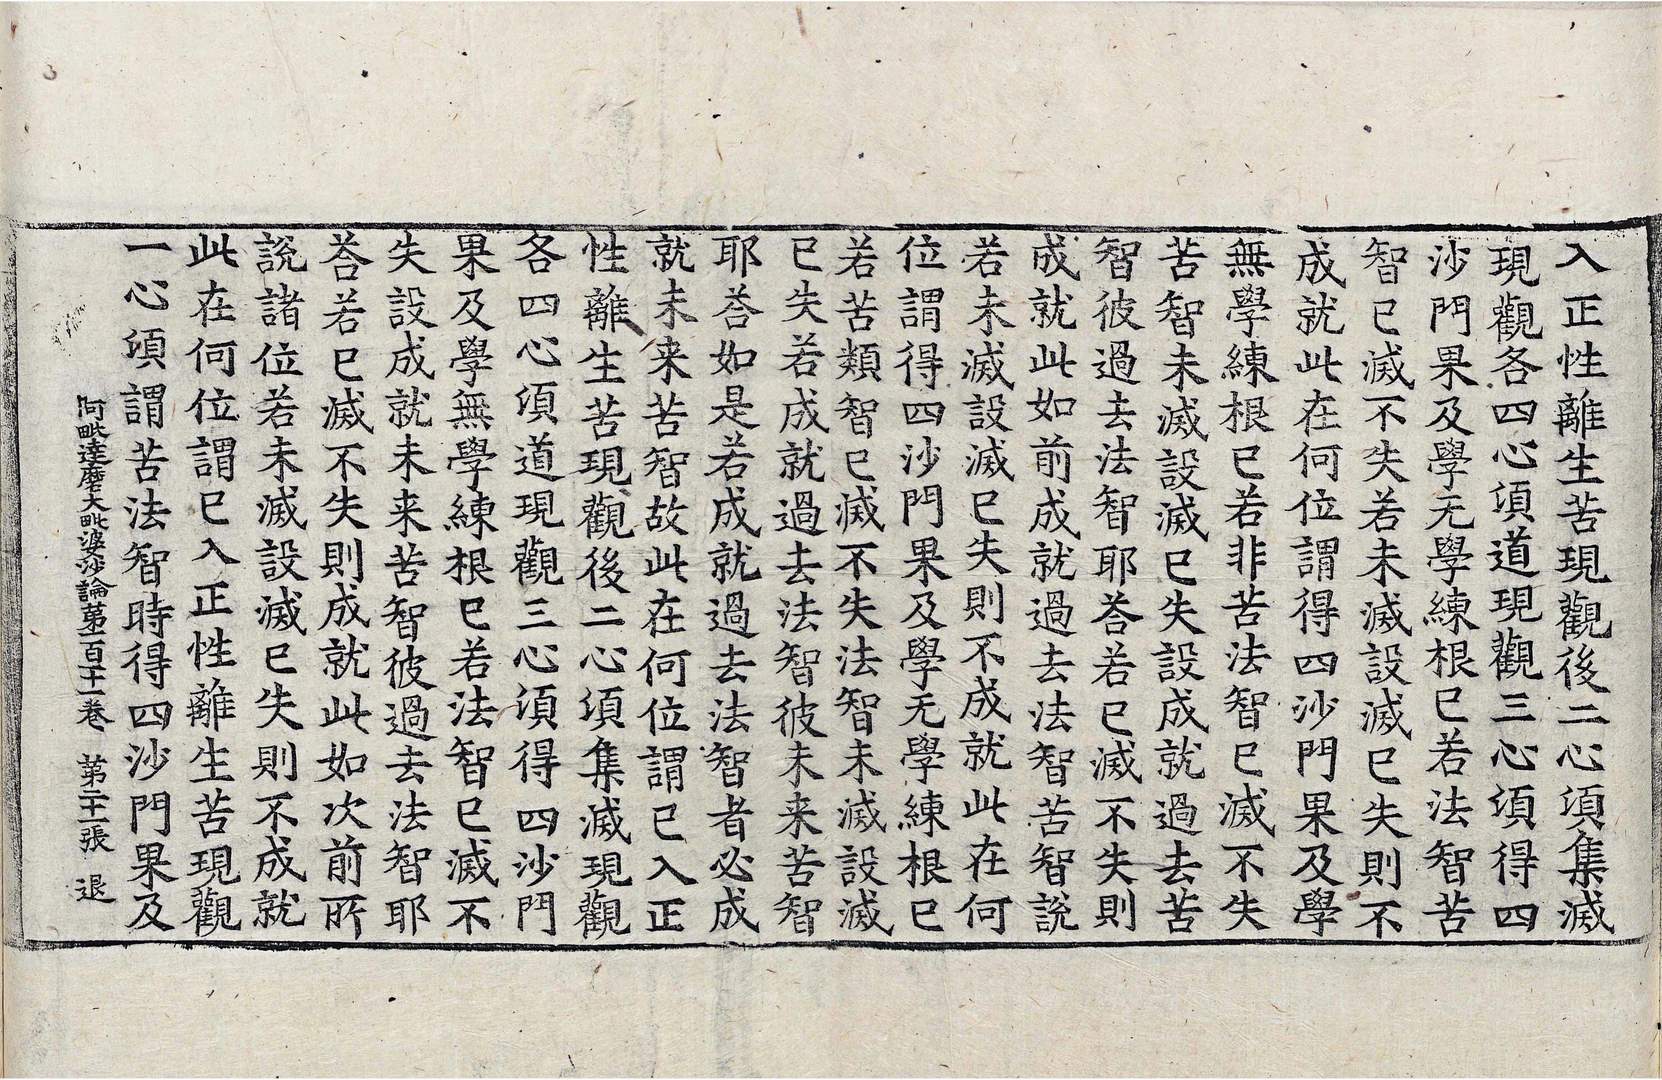 入正性離生苦現觀後二心湏集滅
現觀各四心湏道現觀三心湏得四
沙門果及學无學練根已若法智苦
智已滅不失若未滅設滅已失則不
成就此在何位謂得四沙門果及學
無學練根已若非苦法智已滅不失
苦智未滅設滅已失設成就過去苦
智彼過去法智耶荅若已滅不失則
成就此如前成就過去法智苦智說
若未滅設滅已失則不成就此在何
位謂得四沙門果及學无學練根已
若苦類智已滅不失法智未滅設滅
已失若成就過去法智彼未来苦智
耶荅如是若成就過去法智者必成
就未来苦智故此在何位謂已入正
性離生苦現觀後二心湏集滅現觀
各四心湏道現觀三心湏得四沙門
果及學無學練根已若法智已滅不
失設成就未来苦智彼過去法智耶
荅若已滅不失則成就此如次前所
說諸位若未滅設滅已失則不成就
此在何位謂已入正性離生苦現觀
一心湏謂苦法智時得四沙門果及
阿毗達磨大毗婆沙論第一百十一卷 第二十一張 退